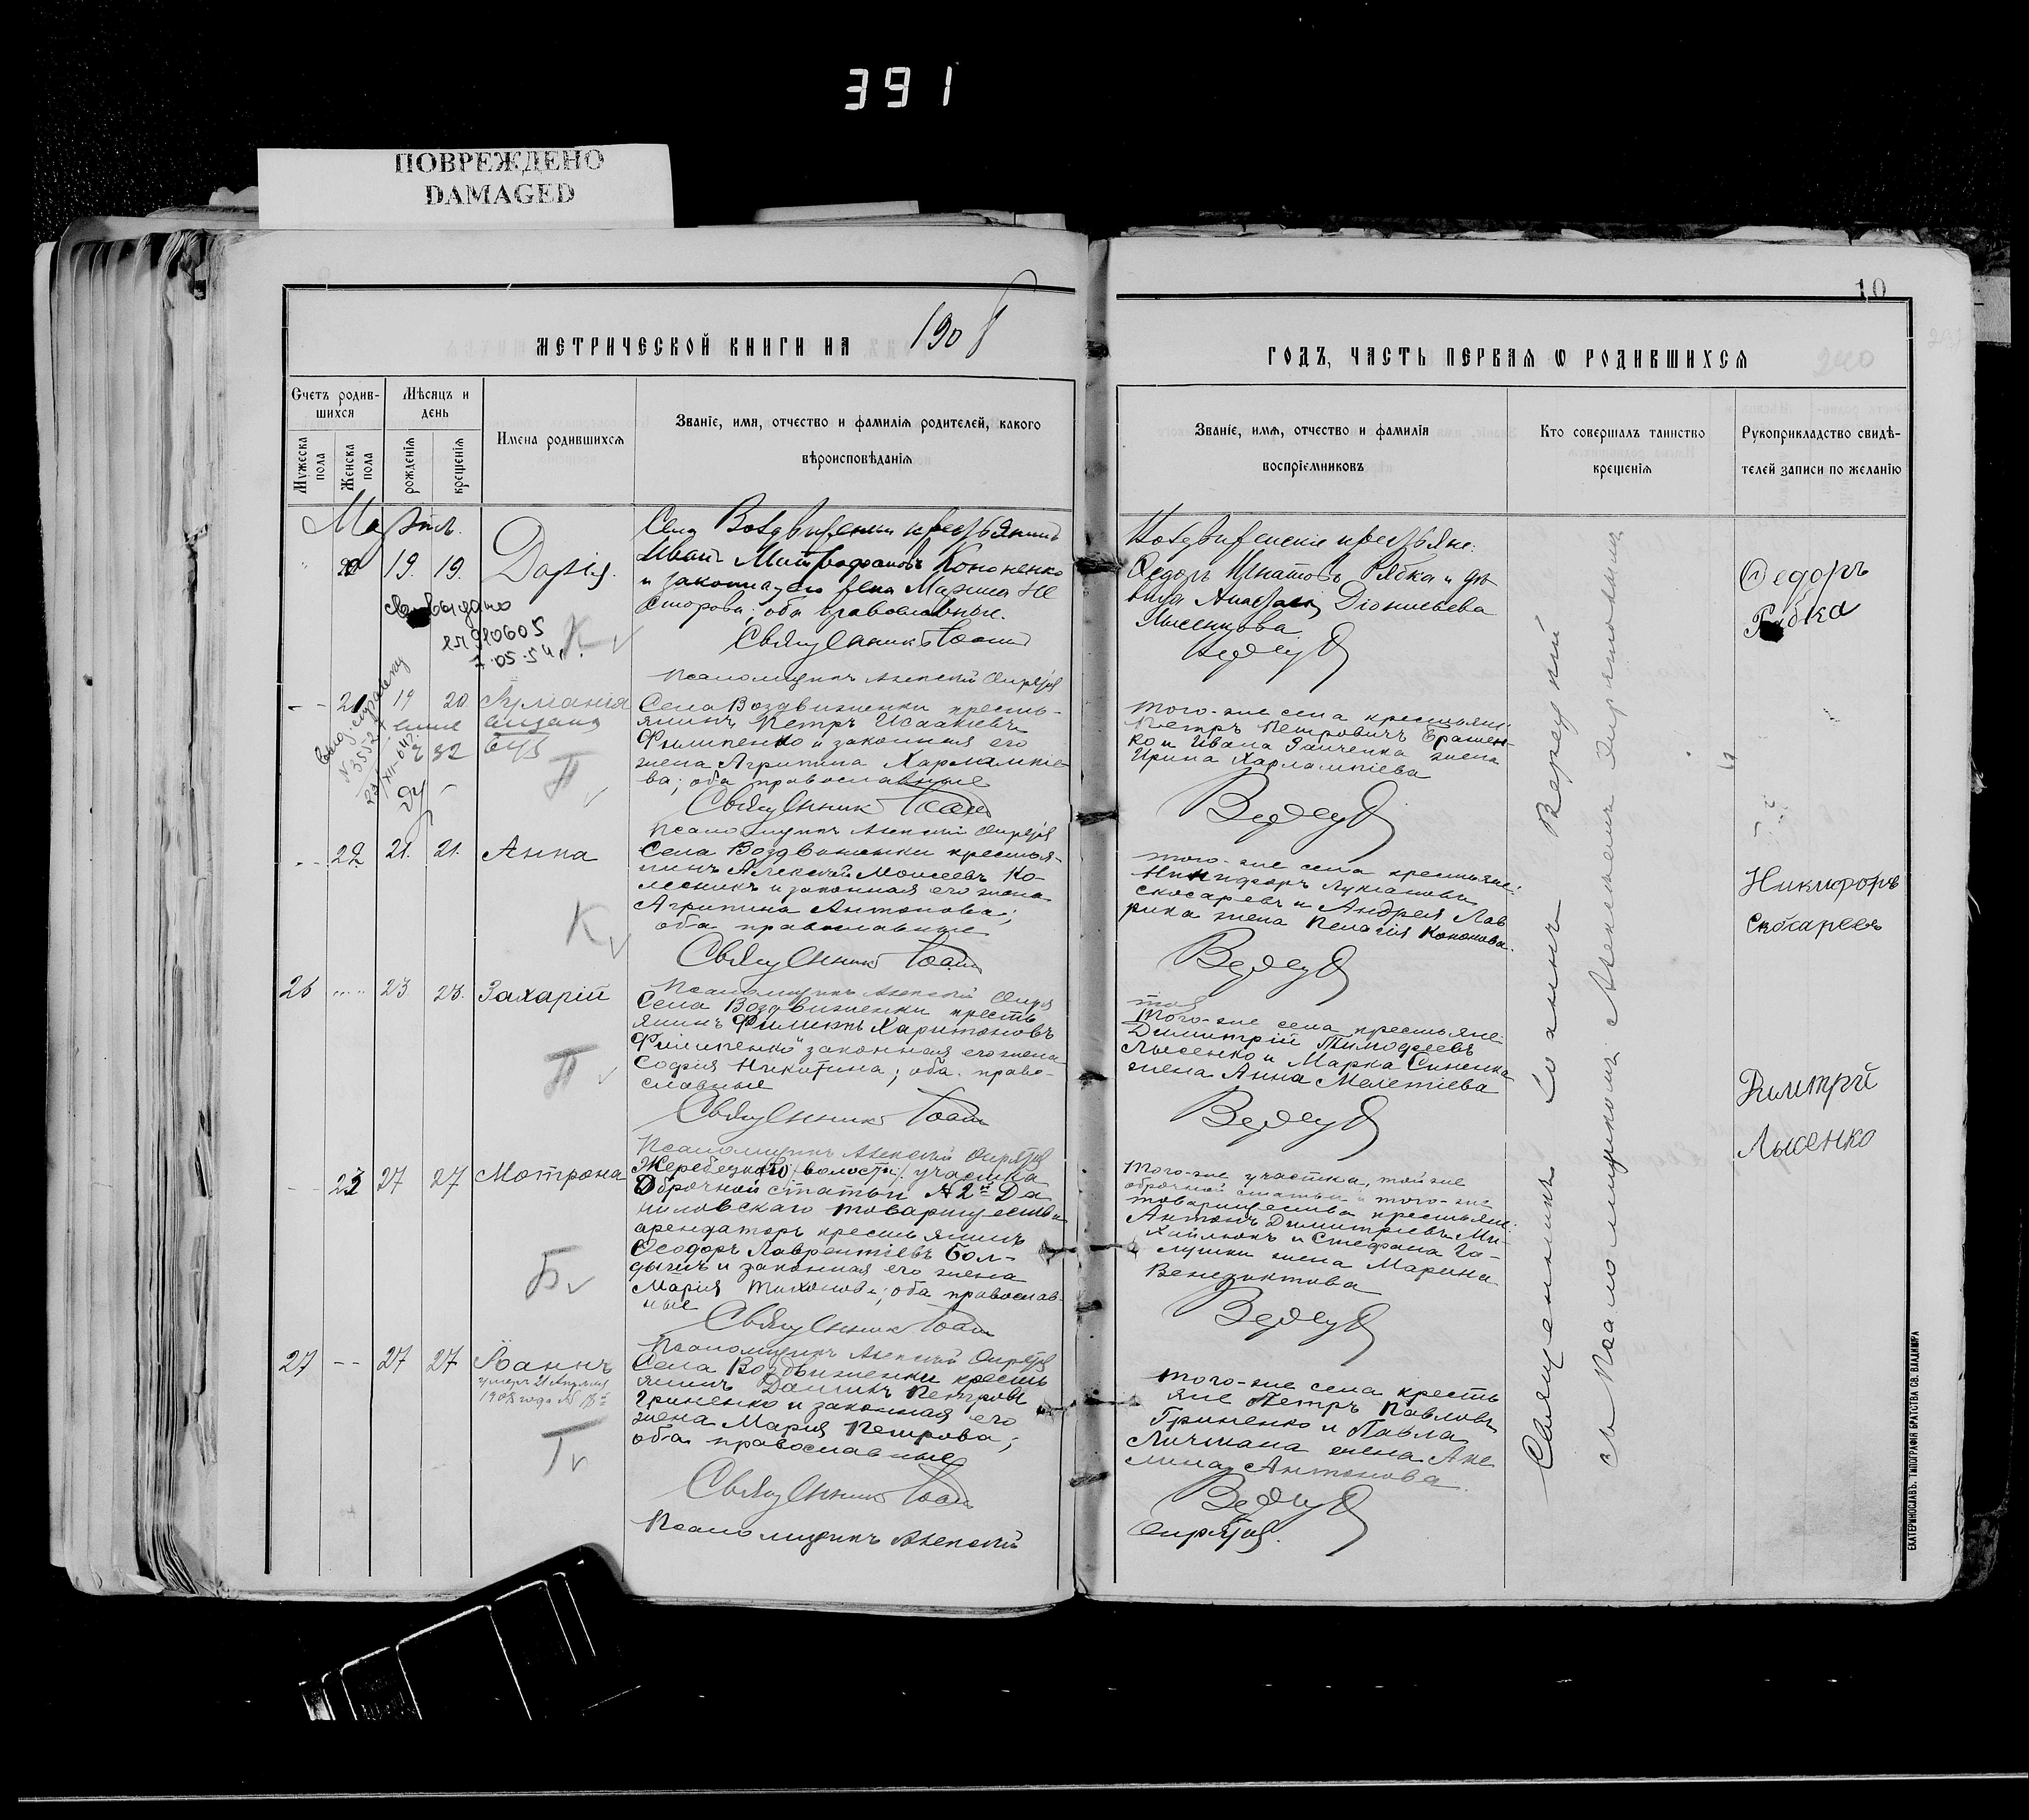 391
ПОВРЕЖДЕНО
DAMAGED
10
МЕТРИЧЕСКОЙ КНИГИ НА 1908
ГОДЪ, ЧАСТЬ ПЕРВАЯ Ѡ РОДИВШИХСЯ
240
Счетъ родив-
шихся
Мужеска пола
Женска пола
Мѣсяцъ и
день
рожденія
крещенія
Имена родившихся
Званіе, имя, отчество и фамилія родителей, какого
вѣроисповѣданія
Званіе, имя, отчество и фамилія
воспріемниковъ
Кто совершалъ таинство
крещенія
Рукоприкладство свидѣ-
телей записи по желанію
Мартъ.
20 19. 19. Дарія.
Села Воздвиженки крестьянинъ
Иванъ Митрофановъ Кононенко
и законная его жена Марина Не
сторова; оба православные.
Священникъ Іоаннъ
Псаломщикъ Алексій
Воздвиженскіе крестьяне:
Ѳедоръ Игнатовъ Рябка и дѣ
вица Анастасія Діонисьева
Лысенкова.
Ѳедоръ
Рябка
выдано
7.05.54
К
21 19 20
Села Воздвиженки кресть-
янинъ Петръ Исаакіевъ
Филипенко и законная его
жена Агрипина Харлампіе
ва; оба православные
Священникъ Іоаннъ
Псаломщикъ Алексій
того-же села крестьяне:
Петръ Петровичъ
ко и Ивана Заиченка жена
Ирина Харлампіева
П
22 21. 21. Анна
Села Воздвиженки крестья-
нинъ Алексѣй Моисеевъ Ко-
лесникъ и законная его жена
Агрипина Антонова;
оба православные
Священникъ Іоаннъ
Псаломщикъ Алексій
того-же села крестьяне:
Никифоръ Лукіановъ
Скосаревъ и Андрея Лав
рика жена Пелагія Кононова.
Никифоръ
Скосаревъ
К
26 23. 23. Захарій
Села Воздвиженки кресть
янинъ Филиппъ Харитоновъ
Филипенко и законная его жена
Софія Никитина; оба право-
славные
Священникъ Іоаннъ
Псаломщикъ Алексій
Того-же села крестьяне:
Димитрій Тимофеевъ
Лысенко и Марка Синенка
жена Анна Мелетіева
Димитрій
Лысенко
П
23 27 27 Мотрона
Жеребецкой волости участка
Оброчной статьи № 2й Да
ниловскаго товарищества
арендаторъ крестьянинъ
Ѳеодоръ Лаврентіевъ Бол-
дынъ и законная его жена
Марія Тихонова; оба православ-
ные
Священникъ Іоаннъ
Псаломщикъ Алексій
Того-же участка, той же
оброчной статьи и того-же
товарищества крестьяне:
Антонъ Димитріевъ Ми-
хайлюкъ и Стефана Га-
лушки жена Марина
Венедиктова
Б
27 -- 27 27 Іоаннъ
умеръ 21 Апреля
1908 года
Села Воздвиженки кресть
янинъ Даніилъ Петровъ
Гриненко и законная его
жена Марія Петрова;
оба православные
Священникъ Іоаннъ
Псаломщикъ Алексій
того-же села кресть
яне Петръ Павловъ
Гриненко и Павла
Личмана жена Аке
лина Антонова.
Г
Священникъ Іоаннъ
съ Псаломщикомъ Алексіемъ
ЕКАТЕРИНОСЛАВЪ. ТИПОГРАФІЯ БРАТСТВА СВ. ВЛАДИМІРА